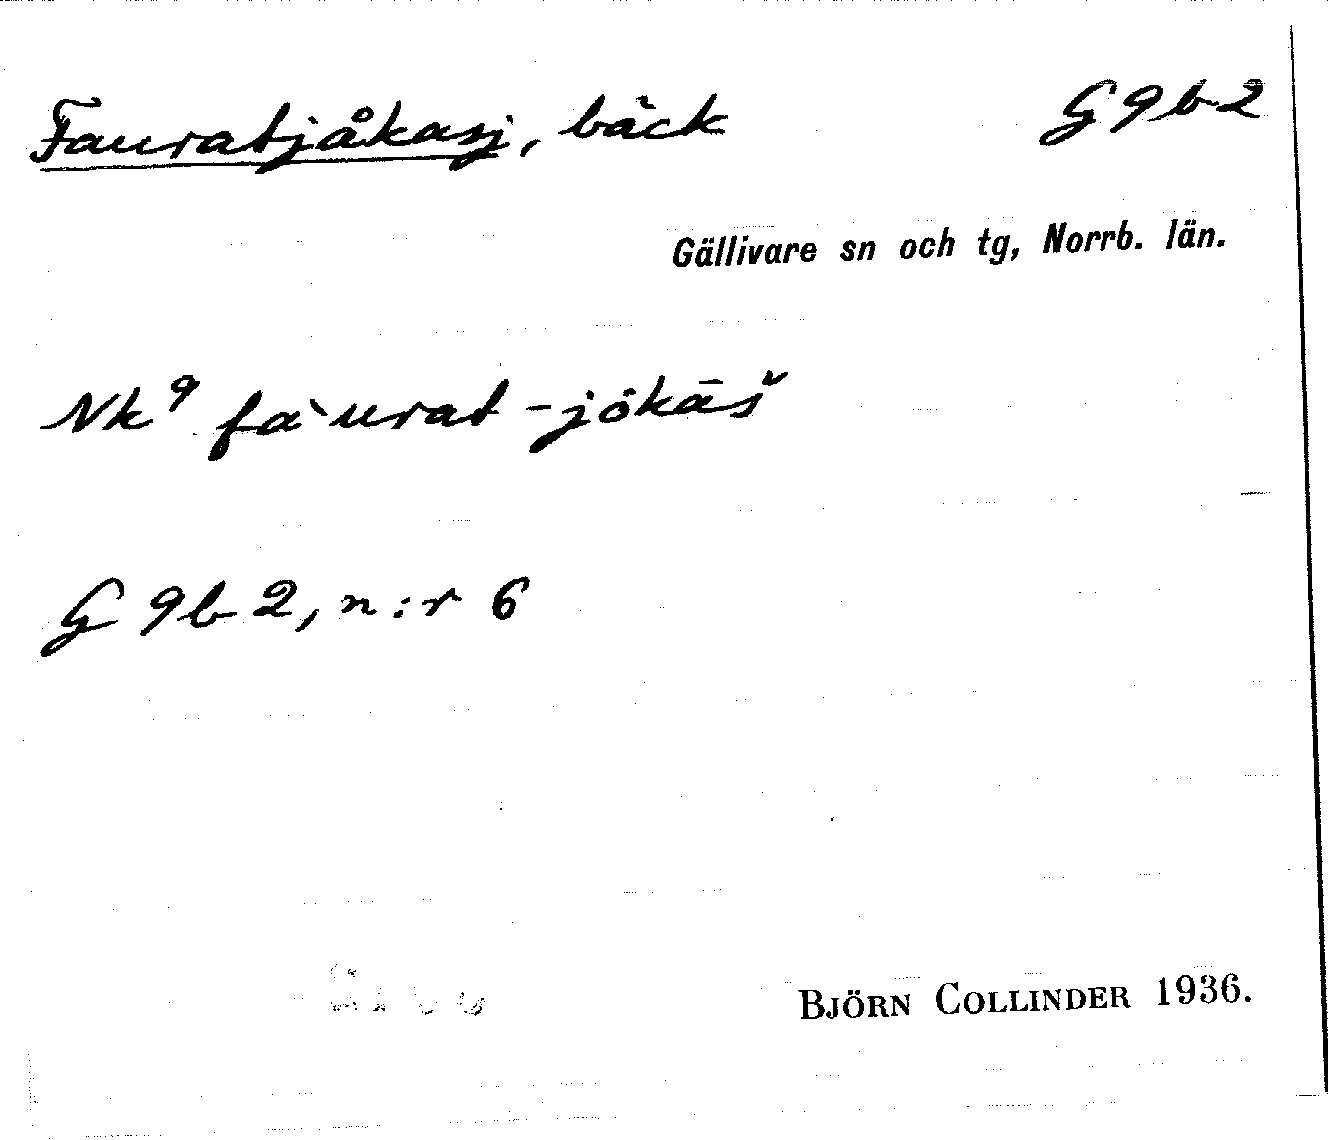 Fauratjåkasj, bäck G9b2
Gällivare sn och tg, Norrb. län.
Nk⁹ fàurat-jåkāš
G 9b 2, n:r 6
BJÖRN COLLINDER 1936.